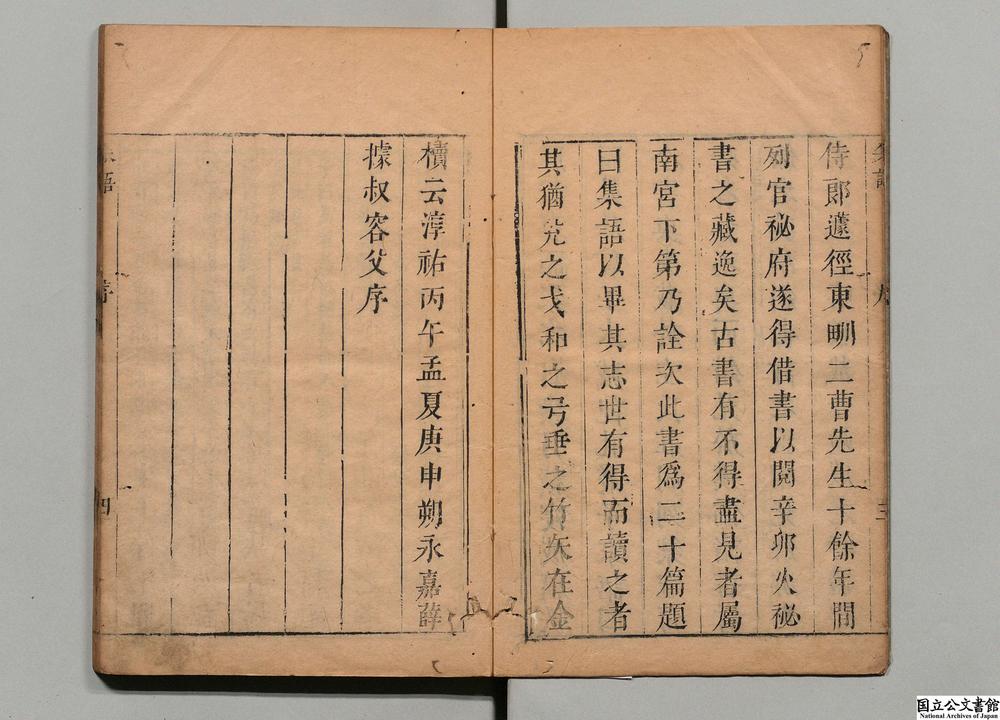 侍郎蘧徑東畎二曹先生十餘年間
列官祕府遂得借書以閱辛卯火祕
書之藏逸矣古書有不得盡見者屬
南宮下第乃詮次此書爲二十篇題
曰集語以畢其志世有得而讀之者
其猶兊之戈和之弓垂之竹矢在金
櫝云淳祐丙午孟夏庚申朔永嘉薛
據叔容父序
序
四
国立公文書館
National Archives of Japan